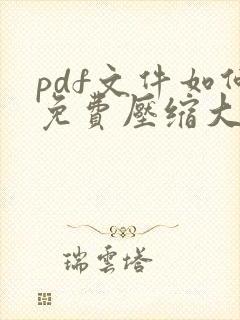 pdf文件如何
免費壓缩大
瑞雲塔